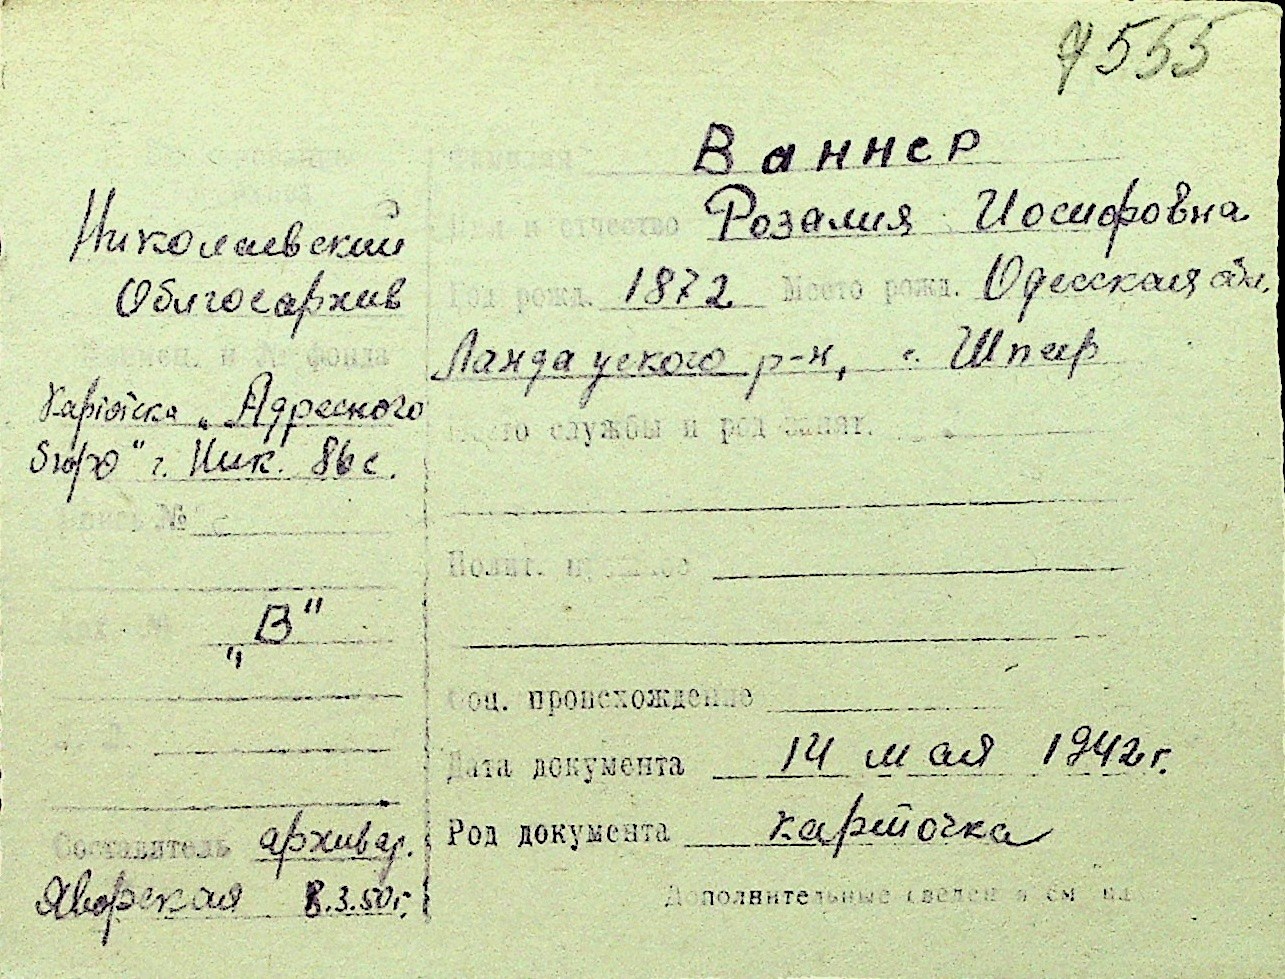 7555
Ваннер
Имя и отчество Розалия Иосифовна
Год рожд. 1872 Место рожд. Одесская обл.
Ландауского р-н, с. Шпеер
Место службы и род занят.
Полит. прошлое
Соц. происхождение
Дата документа 14 мая 1942 г.
Род документа карточка
Дополнительные сведен
Николаевский
Облгосархив
фонда
Картотека „Адресного
бюро" г. Ник.
Опись №
„В"
Составитель архивар.
Яворская 8.3.50г.